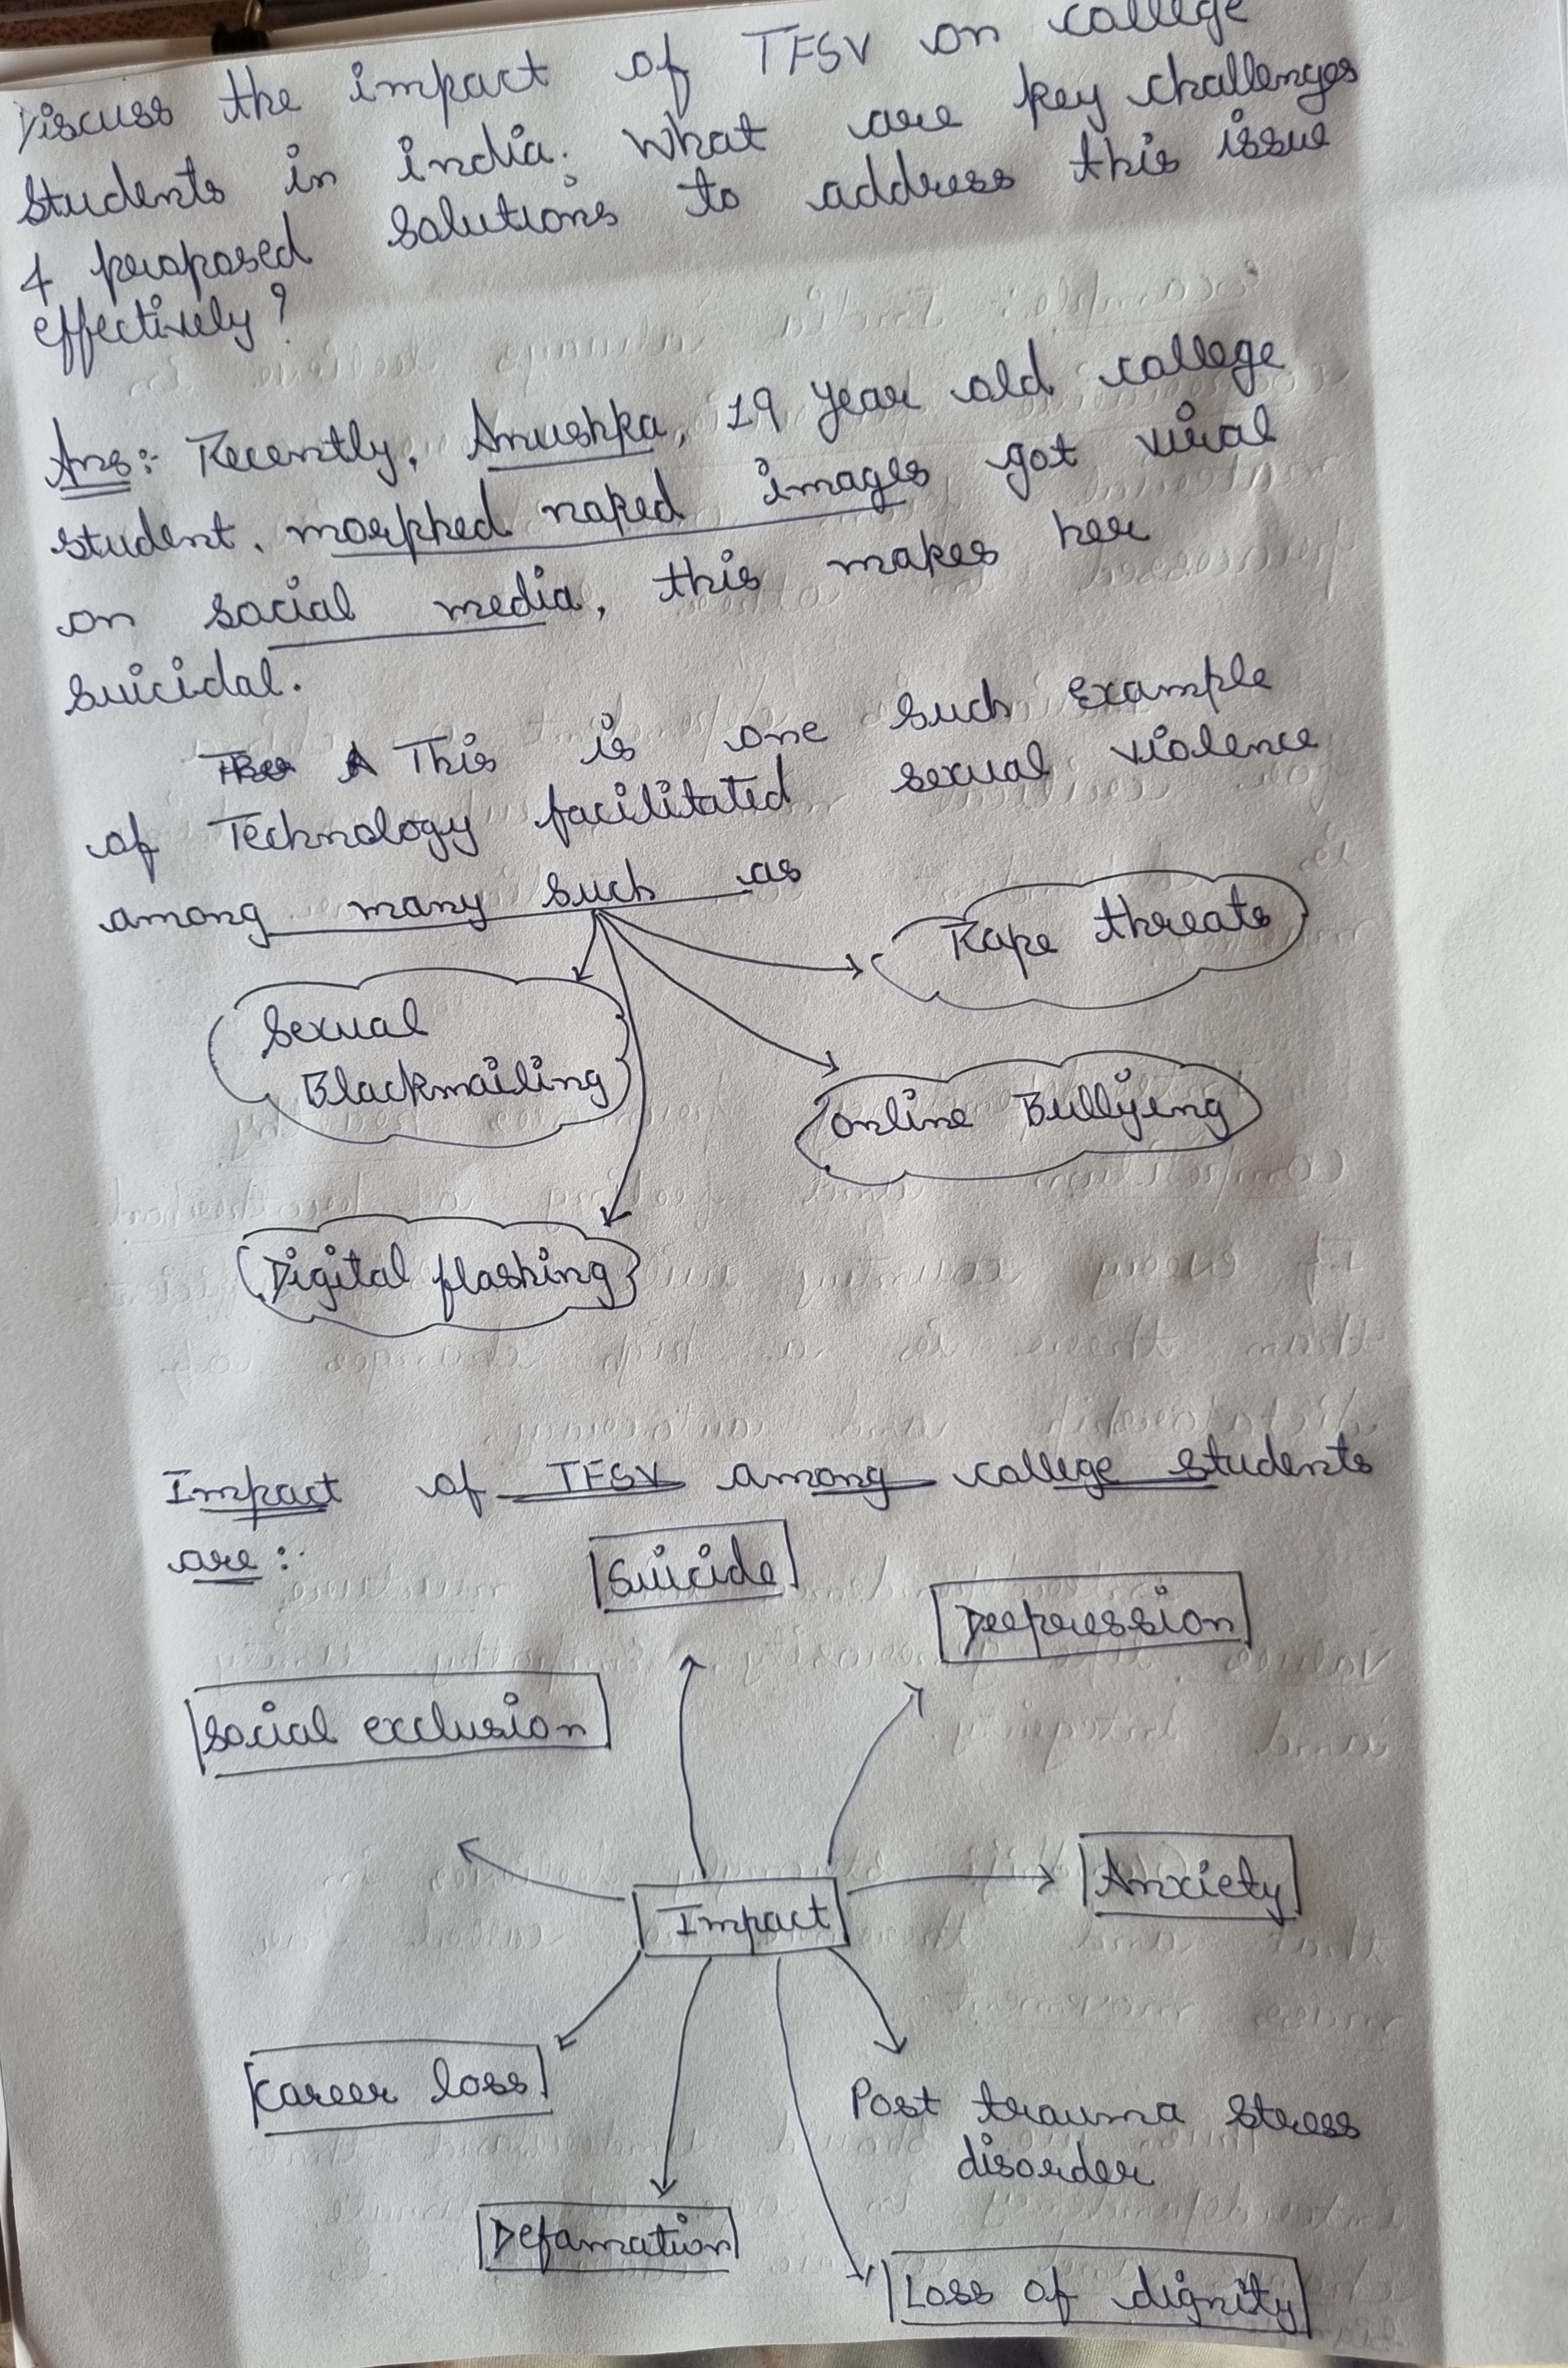 Discuss the impact of TFSV on college
students in india. What are key challenges
& proposed solutions to address this issue
effectively?
Ans:- Recently, Anushka, 19 year old college
student, morphed naked images got viral
on social media, this makes her
suicidal.
This is one such example
of Technology facilitated sexual violence
among many such as
Rape threats
Sexual
Blackmailing
Online Bullying
Digital flashing
Impact of TFSV among college students
are:-
Suicide
Deepression
Social exclusion
Anxiety
Impact
Career loss
Post trauma stress
disorder
Defamation
Loss of dignity